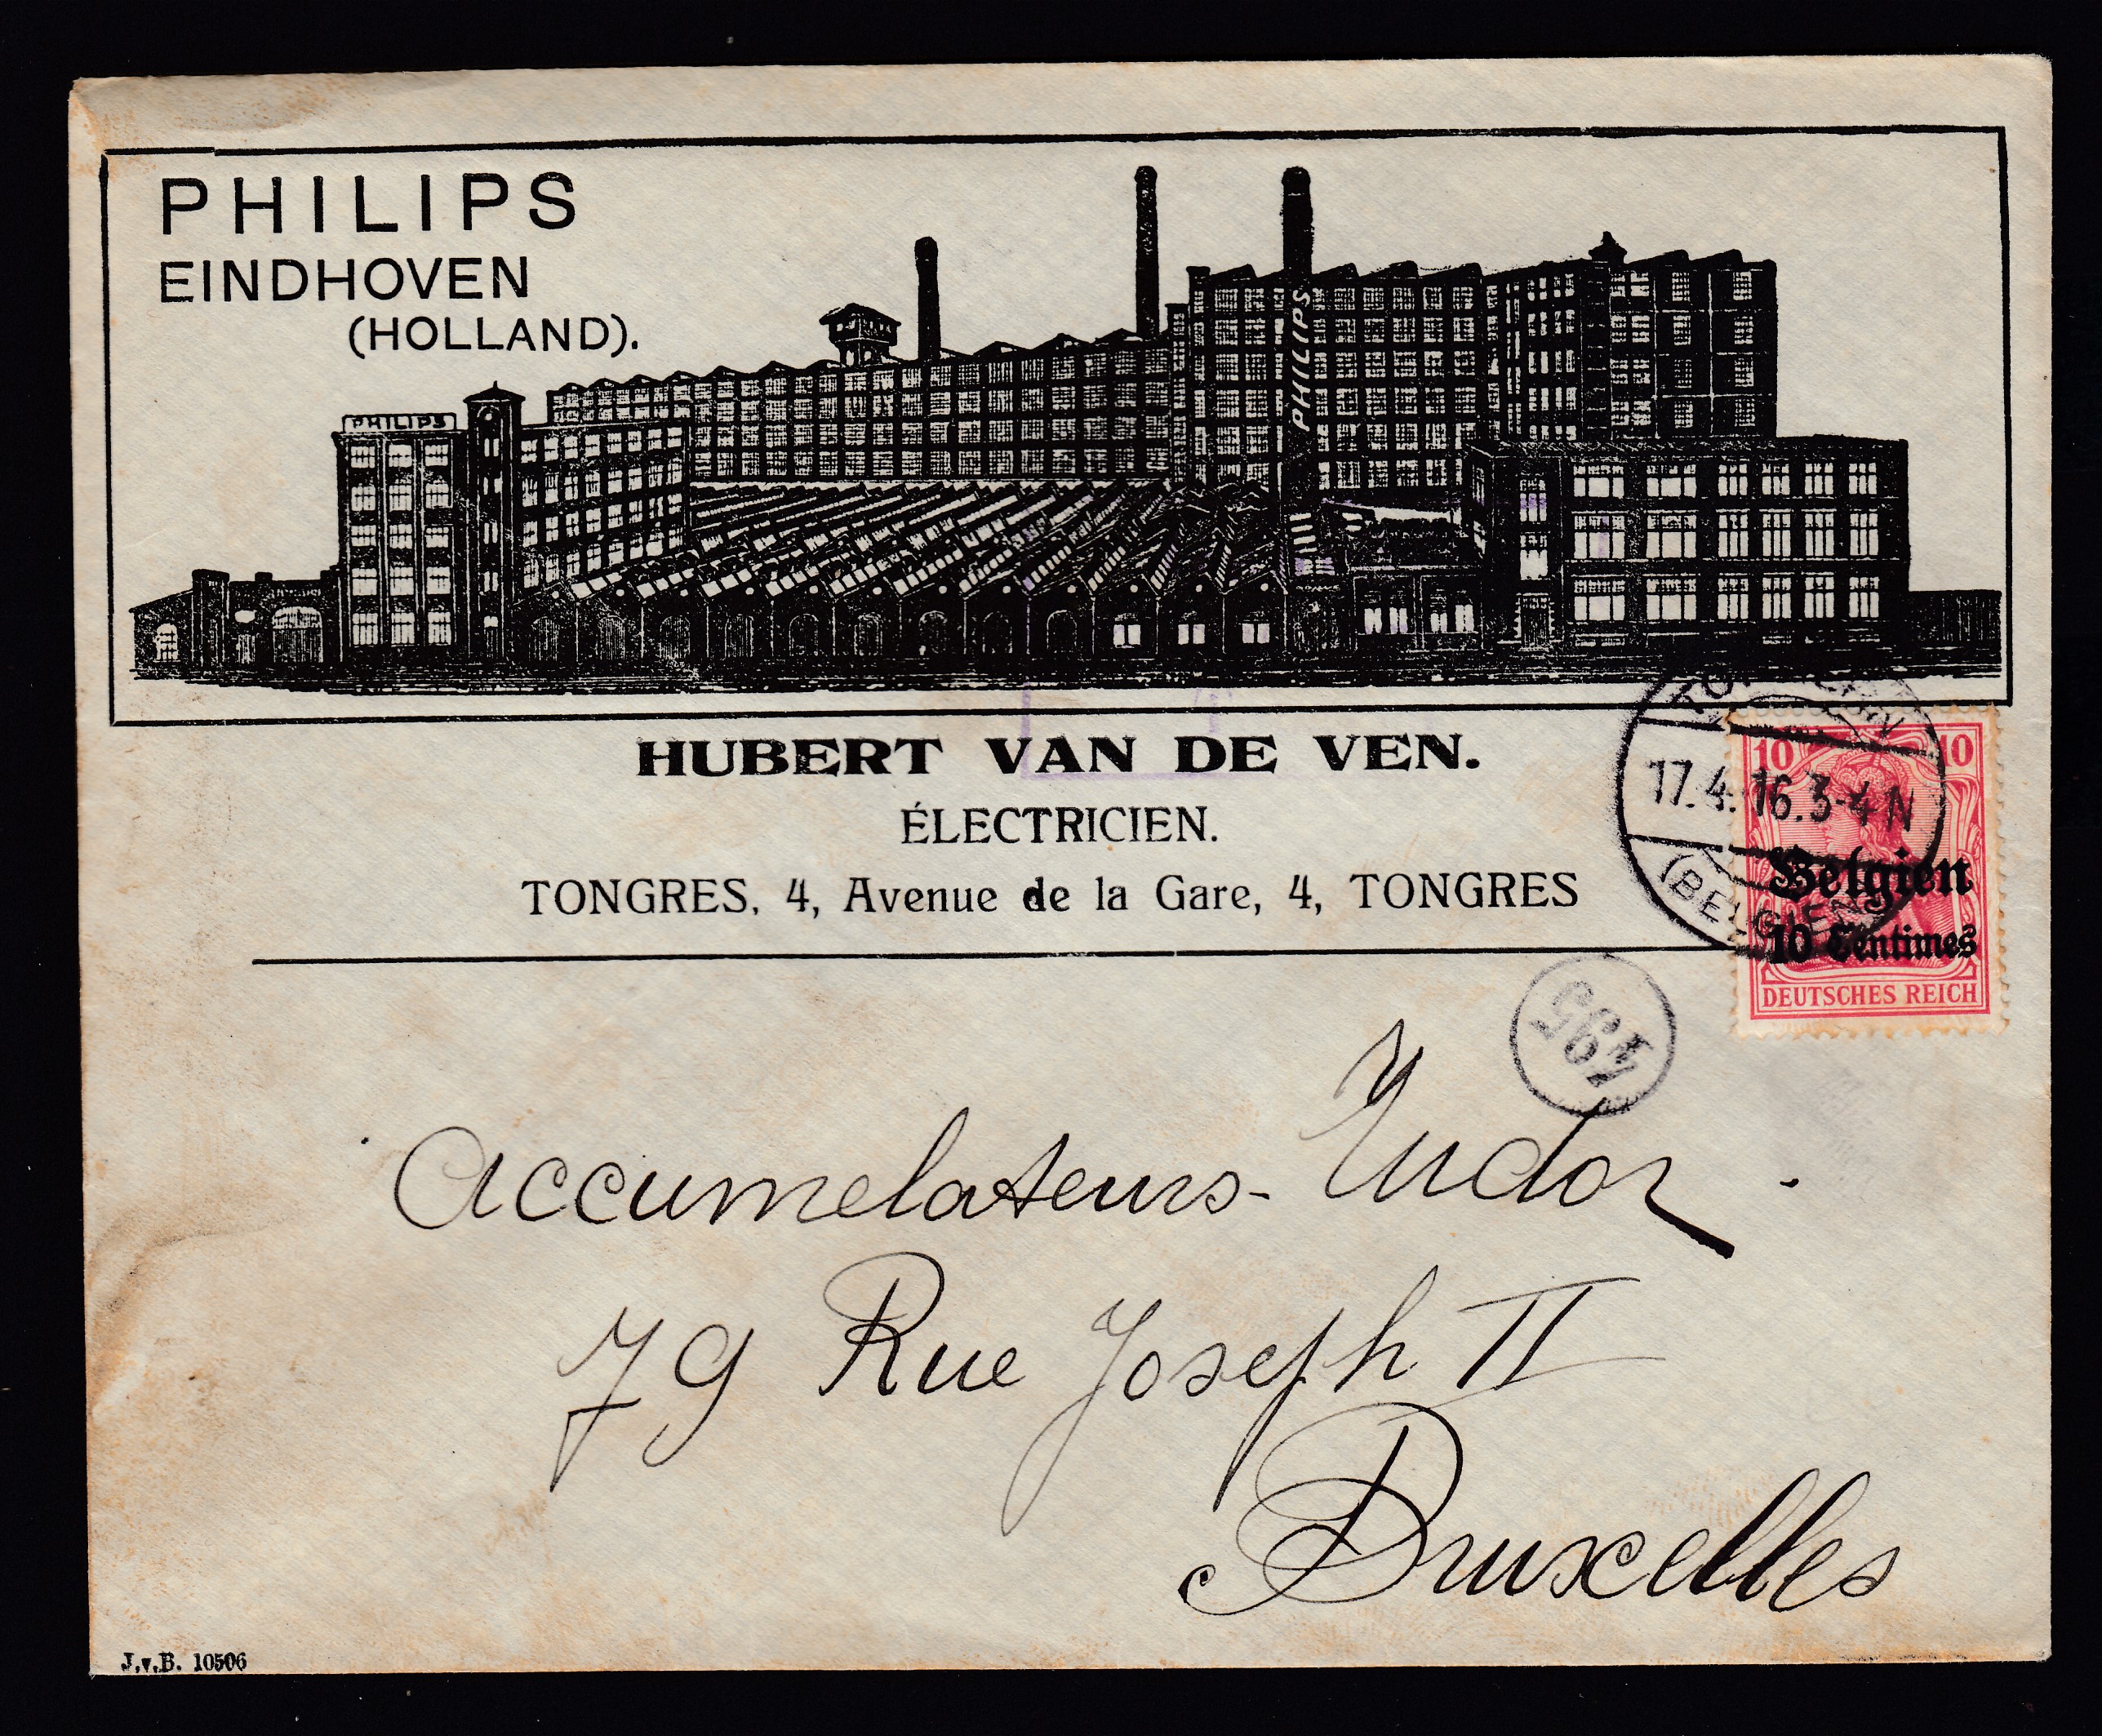 PHILIPS
EINDHOVEN
(HOLLAND).
PHILIPS
PHILIPS
HUBERT VAN DE VEN.
ÉLECTRICIEN.
TONGRES, 4, Avenue de la Gare, 4, TONGRES
17.4.16.3-4N
(BELGIEN)
10 10
Belgien
10 Centimes
DEUTSCHES REICH
495
Accumelateurs-Tudor.
79 Rue Joseph II
Bruxelles
J.v.B. 10506